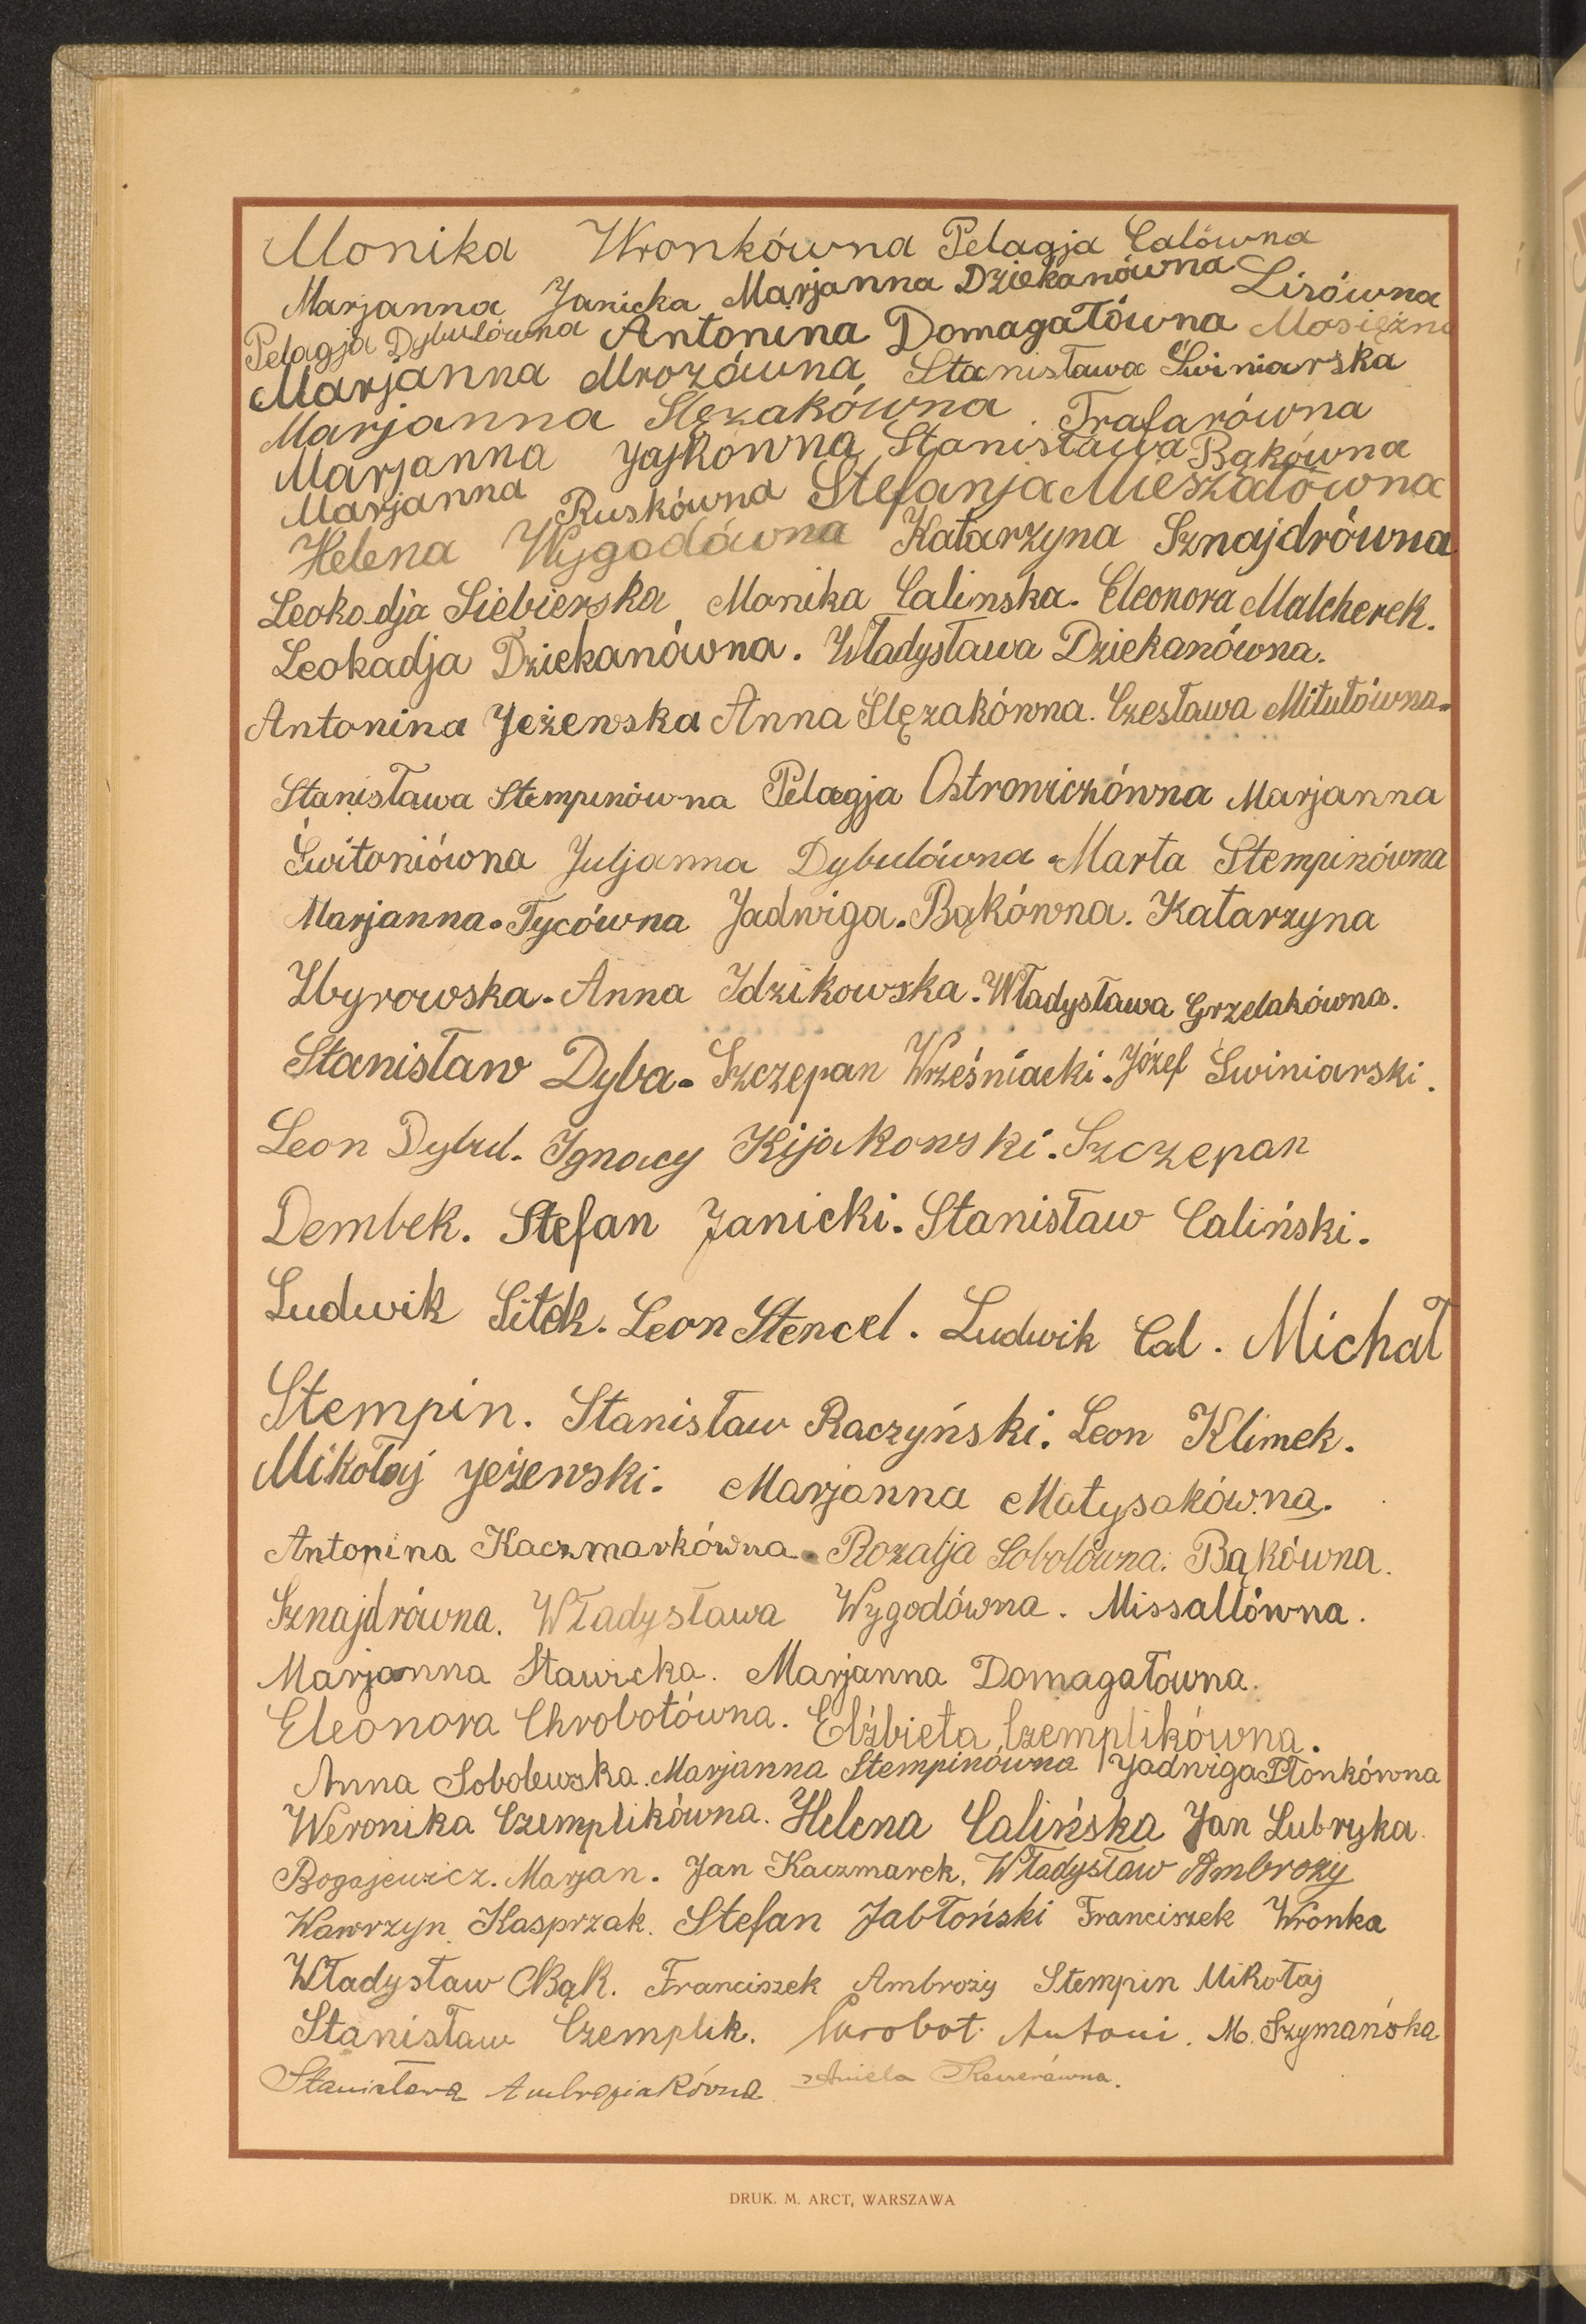 Monika Wronkówna Pelagja Calówna
Marjanna Janicka Marjanna Dziekanówna Lisówna
Pelagja Dybulówna Antonina Domagałówna Mosiężna
Marjanna Mrozówna Stanisława Świniarska
Marjanna Ślęzakówna Trafarówna
Marjanna Jajkówna Stanisława Bąkówna
Marjanna Ruskówna Stefanja Mieszałówna
Helena Wygodówna Katarzyna Sznajdrówna
Leokadja Siebierska Monika Calinska. Eleonora Malcherek.
Leokadja Dziekanówna. Władysława Dziekanówna.
Antonina Jeżewska Anna Ślęzakówna. Czesława Mitułówna.
Stanisława Stempinówna Pelagja Ostrowiczówna Marjanna
Świtoniówna Juljanna Dybulówna. Marta Stempinówna
Marjanna. Tycówna Jadwiga. Bąkówna. Katarzyna
Zbyrowska. Anna Idzikowska. Władysława Grzelakówna.
Stanisław Dyba. Szczepan Wrześniacki. Józef Świniarski.
Leon Dybul. Ignacy Kijakowski. Szczepan
Dembek. Stefan Janicki. Stanisław Caliński.
Ludwik Sitek. Leon Stencel. Ludwik Cal. Michał
Stempin. Stanisław Raczyński. Leon Klimek.
Mikołaj Jeżewski. Marjanna Matysakówna.
Antonina Kaczmarkówna. Rozalja Sobolówna. Bąkówna.
Sznajdrówna. Władysława Wygodówna. Missallówna.
Marjanna Stawicka. Marjanna Domagałówna.
Eleonora Chrobotówna. Elżbieta Czemplikówna.
Anna Sobolewska. Marjanna Stempinówna Jadwiga Płonkówna
Weronika Czemplikówna. Helena Calińska Jan Lubryka.
Bogajewicz. Marjan. Jan Kaczmarek. Władysław Ambroży
Wawrzyn. Kasprzak. Stefan Jabłoński Franciszek Wronka
Władysław Bąk. Franciszek Ambroży Stempin Mikołaj
Stanisław Czemplik. Chrobot Antoni. M. Szymańska
Stanisława Ambroziakówna Aniela
DRUK. M. ARCT, WARSZAWA